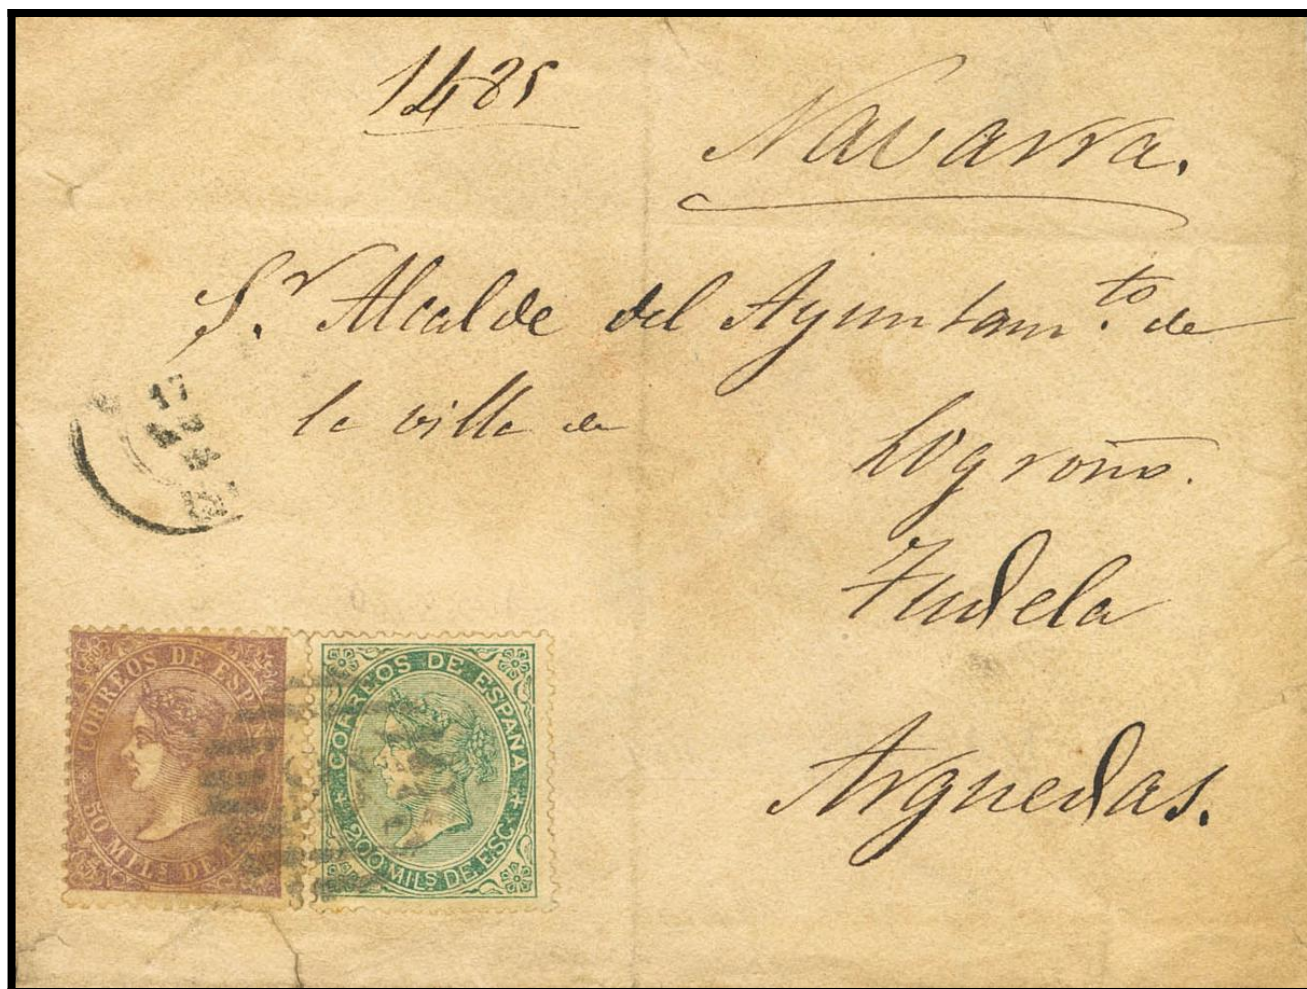 1485
Navarra.
Sr. Alcalde del Ayuntamto. de
la villa de
Logroño.
Tudela
Arguedas.
17
CORREOS DE ESPAÑ
50 MILS DE
CORREOS DE ESPAÑA
200 MILS DE ESC.